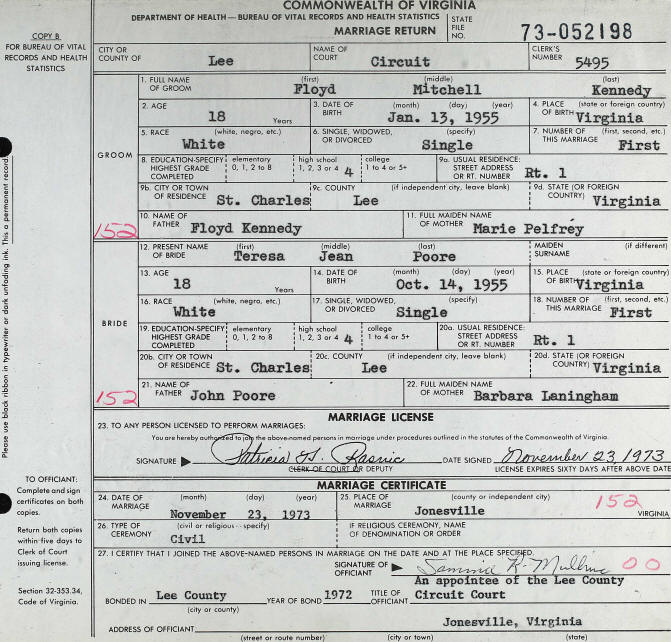 COMMONWEALTH OF VIRGINIA
DEPARTMENT OF HEALTH — BUREAU OF VITAL RECORDS AND HEALTH STATISTICS
MARRIAGE RETURN
STATE FILE NO. 73-052198
COPY B
FOR BUREAU OF VITAL
RECORDS AND HEALTH
STATISTICS
CITY OR COUNTY OF Lee NAME OF COURT Circuit CLERK'S NUMBER 5495
GROOM
1. FULL NAME OF GROOM (first) Floyd (middle) Mitchell (last) Kennedy
2. AGE 18 Years 3. DATE OF BIRTH (month) (day) (year) Jan. 13, 1955 4. PLACE OF BIRTH (state or foreign country) Virginia
5. RACE (white, negro, etc.) White 6. SINGLE, WIDOWED, OR DIVORCED (specify) Single 7. NUMBER OF THIS MARRIAGE (first, second, etc.) First
8. EDUCATION-SPECIFY HIGHEST GRADE COMPLETED elementary 0, 1, 2 to 8 high school 1, 2, 3 or 4 4 college 1 to 4 or 5+ 9a. USUAL RESIDENCE: STREET ADDRESS OR RT. NUMBER Rt. 1
9b. CITY OR TOWN OF RESIDENCE St. Charles 9c. COUNTY (if independent city, leave blank) Lee 9d. STATE (OR FOREIGN COUNTRY) Virginia
152 10. NAME OF FATHER Floyd Kennedy 11. FULL MAIDEN NAME OF MOTHER Marie Pelfrey
BRIDE
12. PRESENT NAME OF BRIDE (first) Teresa (middle) Jean (last) Poore MAIDEN SURNAME (if different)
13. AGE 18 Years 14. DATE OF BIRTH (month) (day) (year) Oct. 14, 1955 15. PLACE OF BIRTH (state or foreign country) Virginia
16. RACE (white, negro, etc.) White 17. SINGLE, WIDOWED, OR DIVORCED (specify) Single 18. NUMBER OF THIS MARRIAGE (first, second, etc.) First
19. EDUCATION-SPECIFY HIGHEST GRADE COMPLETED elementary 0, 1, 2 to 8 high school 1, 2, 3 or 4 4 college 1 to 4 or 5+ 20a. USUAL RESIDENCE: STREET ADDRESS OR RT. NUMBER Rt. 1
20b. CITY OR TOWN OF RESIDENCE St. Charles 20c. COUNTY (if independent city, leave blank) Lee 20d. STATE (OR FOREIGN COUNTRY) Virginia
152 21. NAME OF FATHER John Poore 22. FULL MAIDEN NAME OF MOTHER Barbara Laningham
MARRIAGE LICENSE
23. TO ANY PERSON LICENSED TO PERFORM MARRIAGES:
You are hereby authorized to join the above-named persons in marriage under procedures outlined in the statutes of the Commonwealth of Virginia.
SIGNATURE Patricia G. Rasnic DATE SIGNED November 23, 1973
CLERK OF COURT OR DEPUTY LICENSE EXPIRES SIXTY DAYS AFTER ABOVE DATE
MARRIAGE CERTIFICATE
24. DATE OF MARRIAGE (month) (day) (year) November 23, 1973 25. PLACE OF MARRIAGE (county or independent city) Jonesville 152 VIRGINIA
26. TYPE OF CEREMONY (civil or religious - specify) Civil IF RELIGIOUS CEREMONY, NAME OF DENOMINATION OR ORDER
27. I CERTIFY THAT I JOINED THE ABOVE-NAMED PERSONS IN MARRIAGE ON THE DATE AND AT THE PLACE SPECIFIED.
SIGNATURE OF OFFICIANT Sammie R. Mullins 00
An appointee of the Lee County
BONDED IN Lee County YEAR OF BOND 1972 TITLE OF OFFICIANT Circuit Court
(city or county)
Jonesville, Virginia
ADDRESS OF OFFICIANT
(street or route number) (city or town) (state)
Please use black ribbon in typewriter or dark unfading ink. This a permanent record.
TO OFFICIANT:
Complete and sign
certificates on both
copies.
Return both copies
within five days to
Clerk of Court
issuing license.
Section 32-353.34,
Code of Virginia.